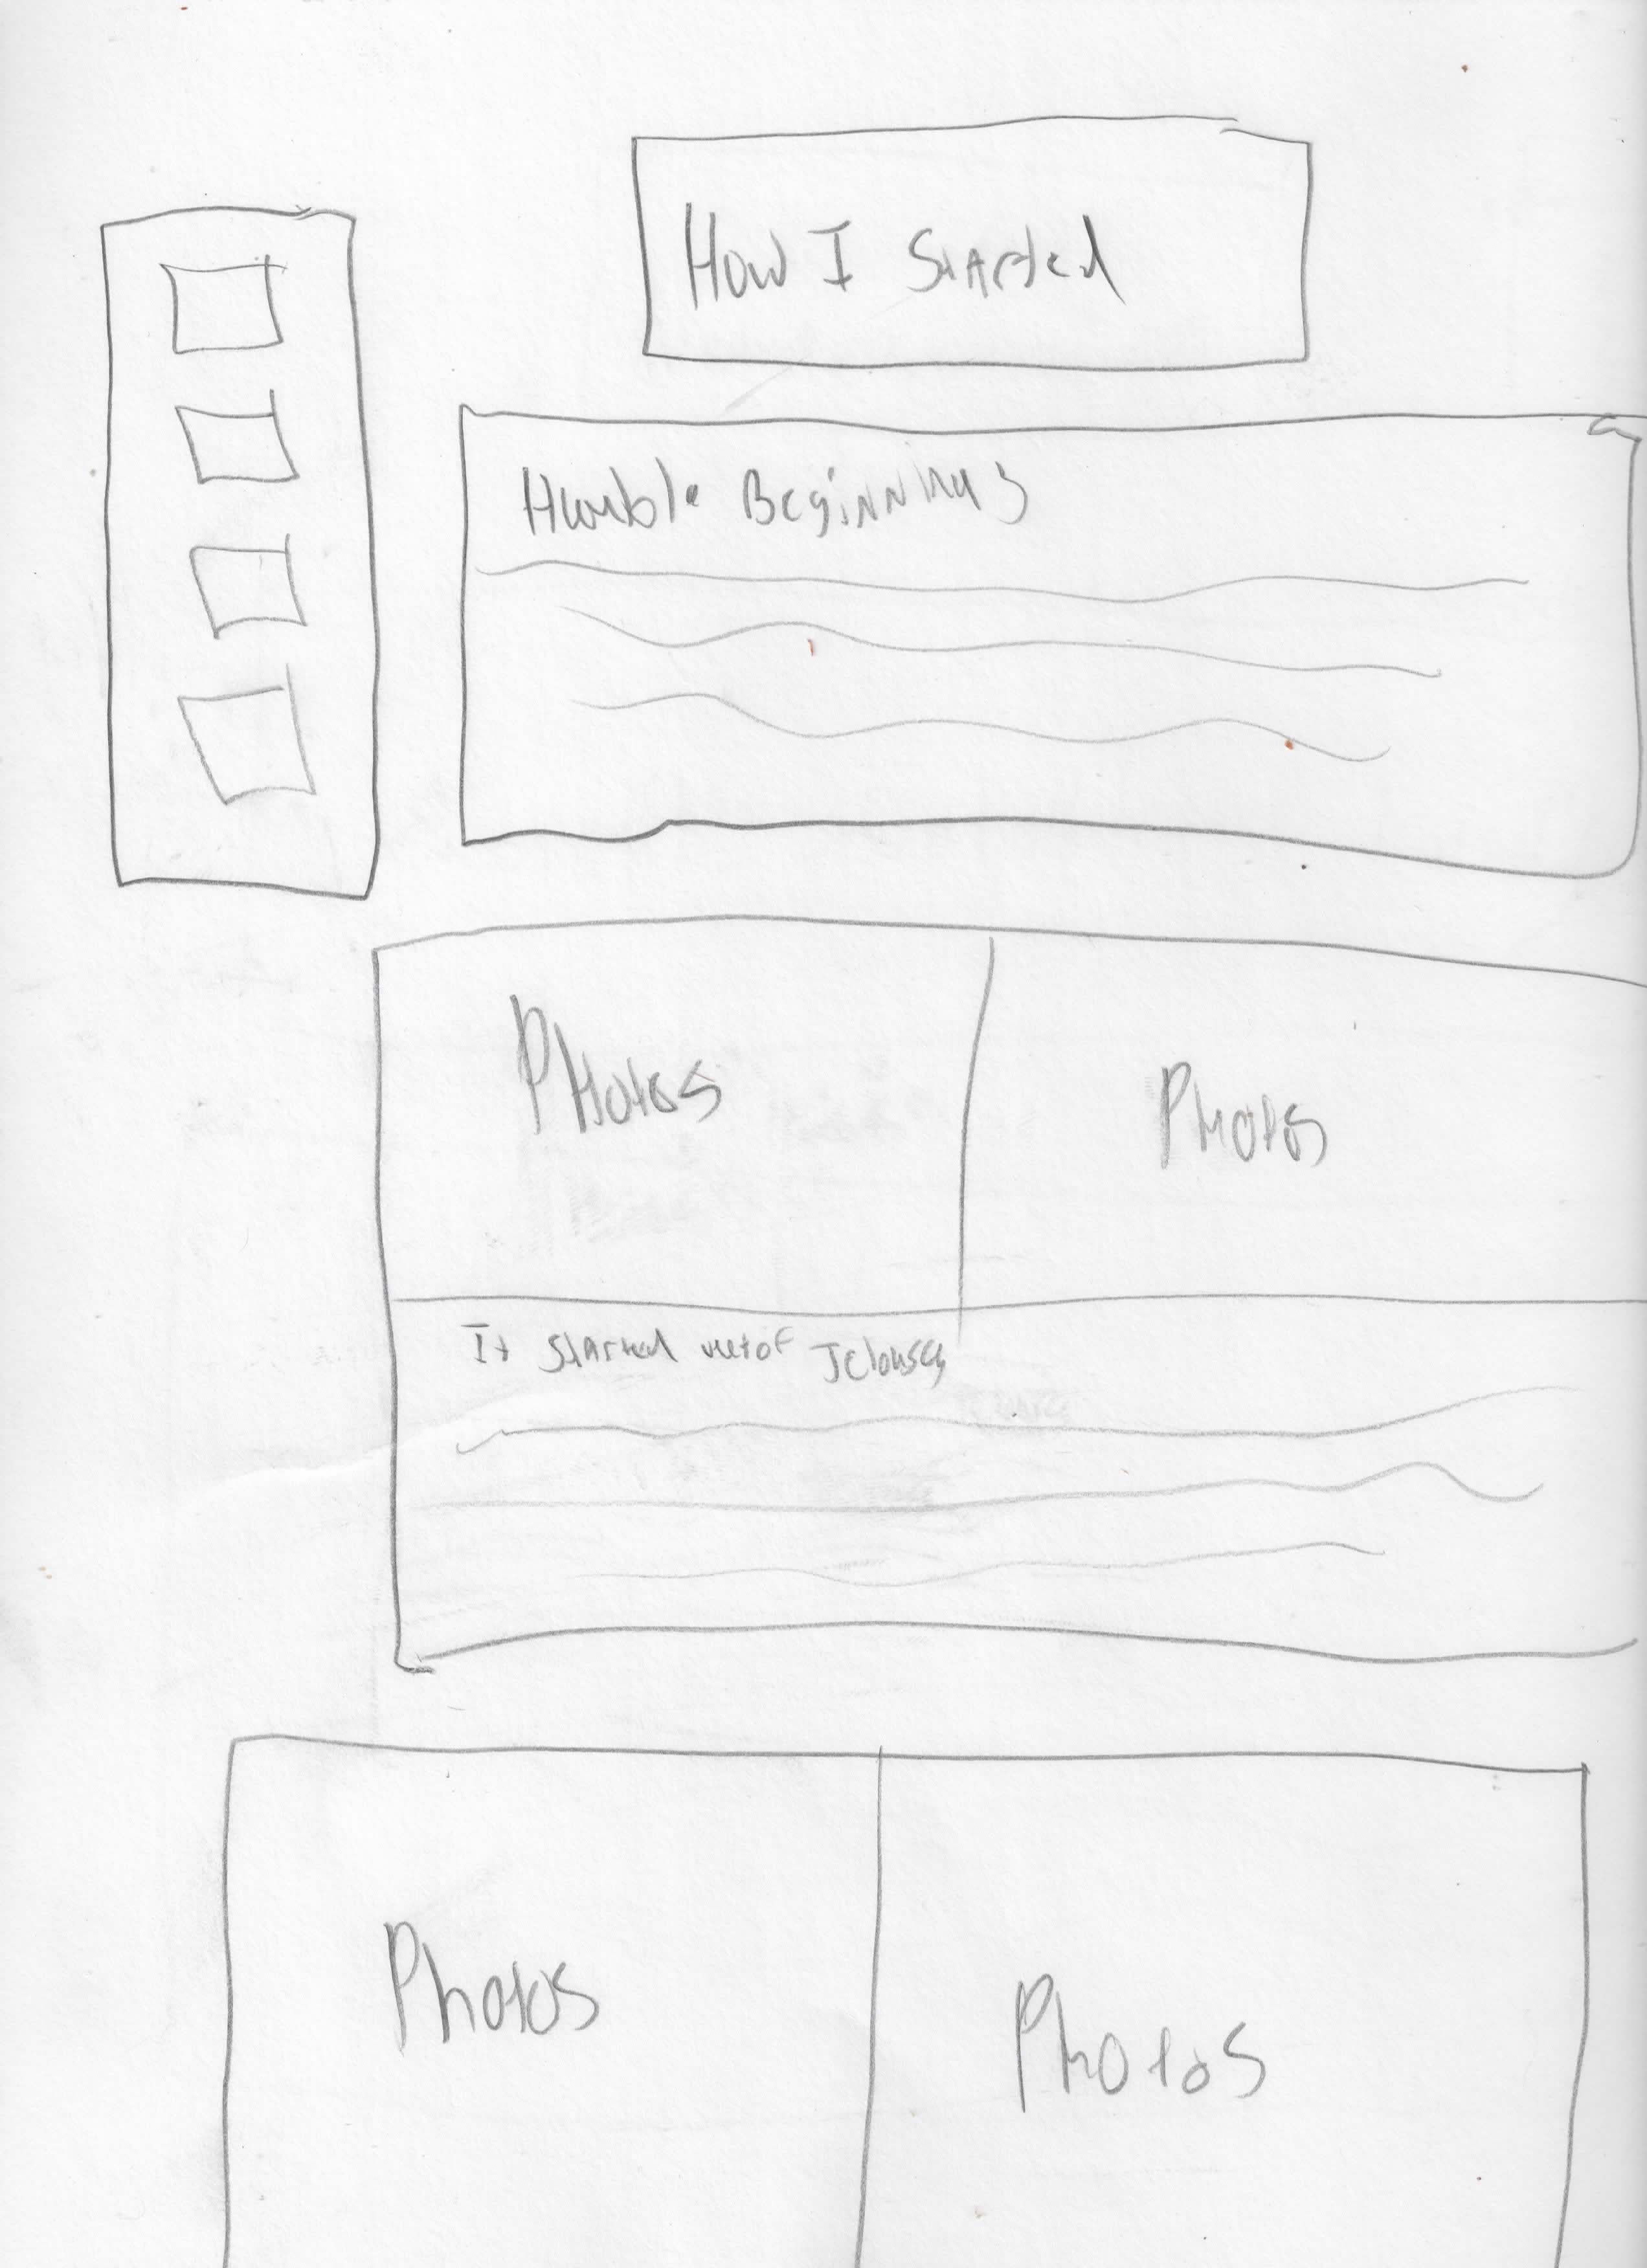 How I Started
Humble Beginnings
PHotos
Photos
It Started out of Jelousy
Photos
Photos